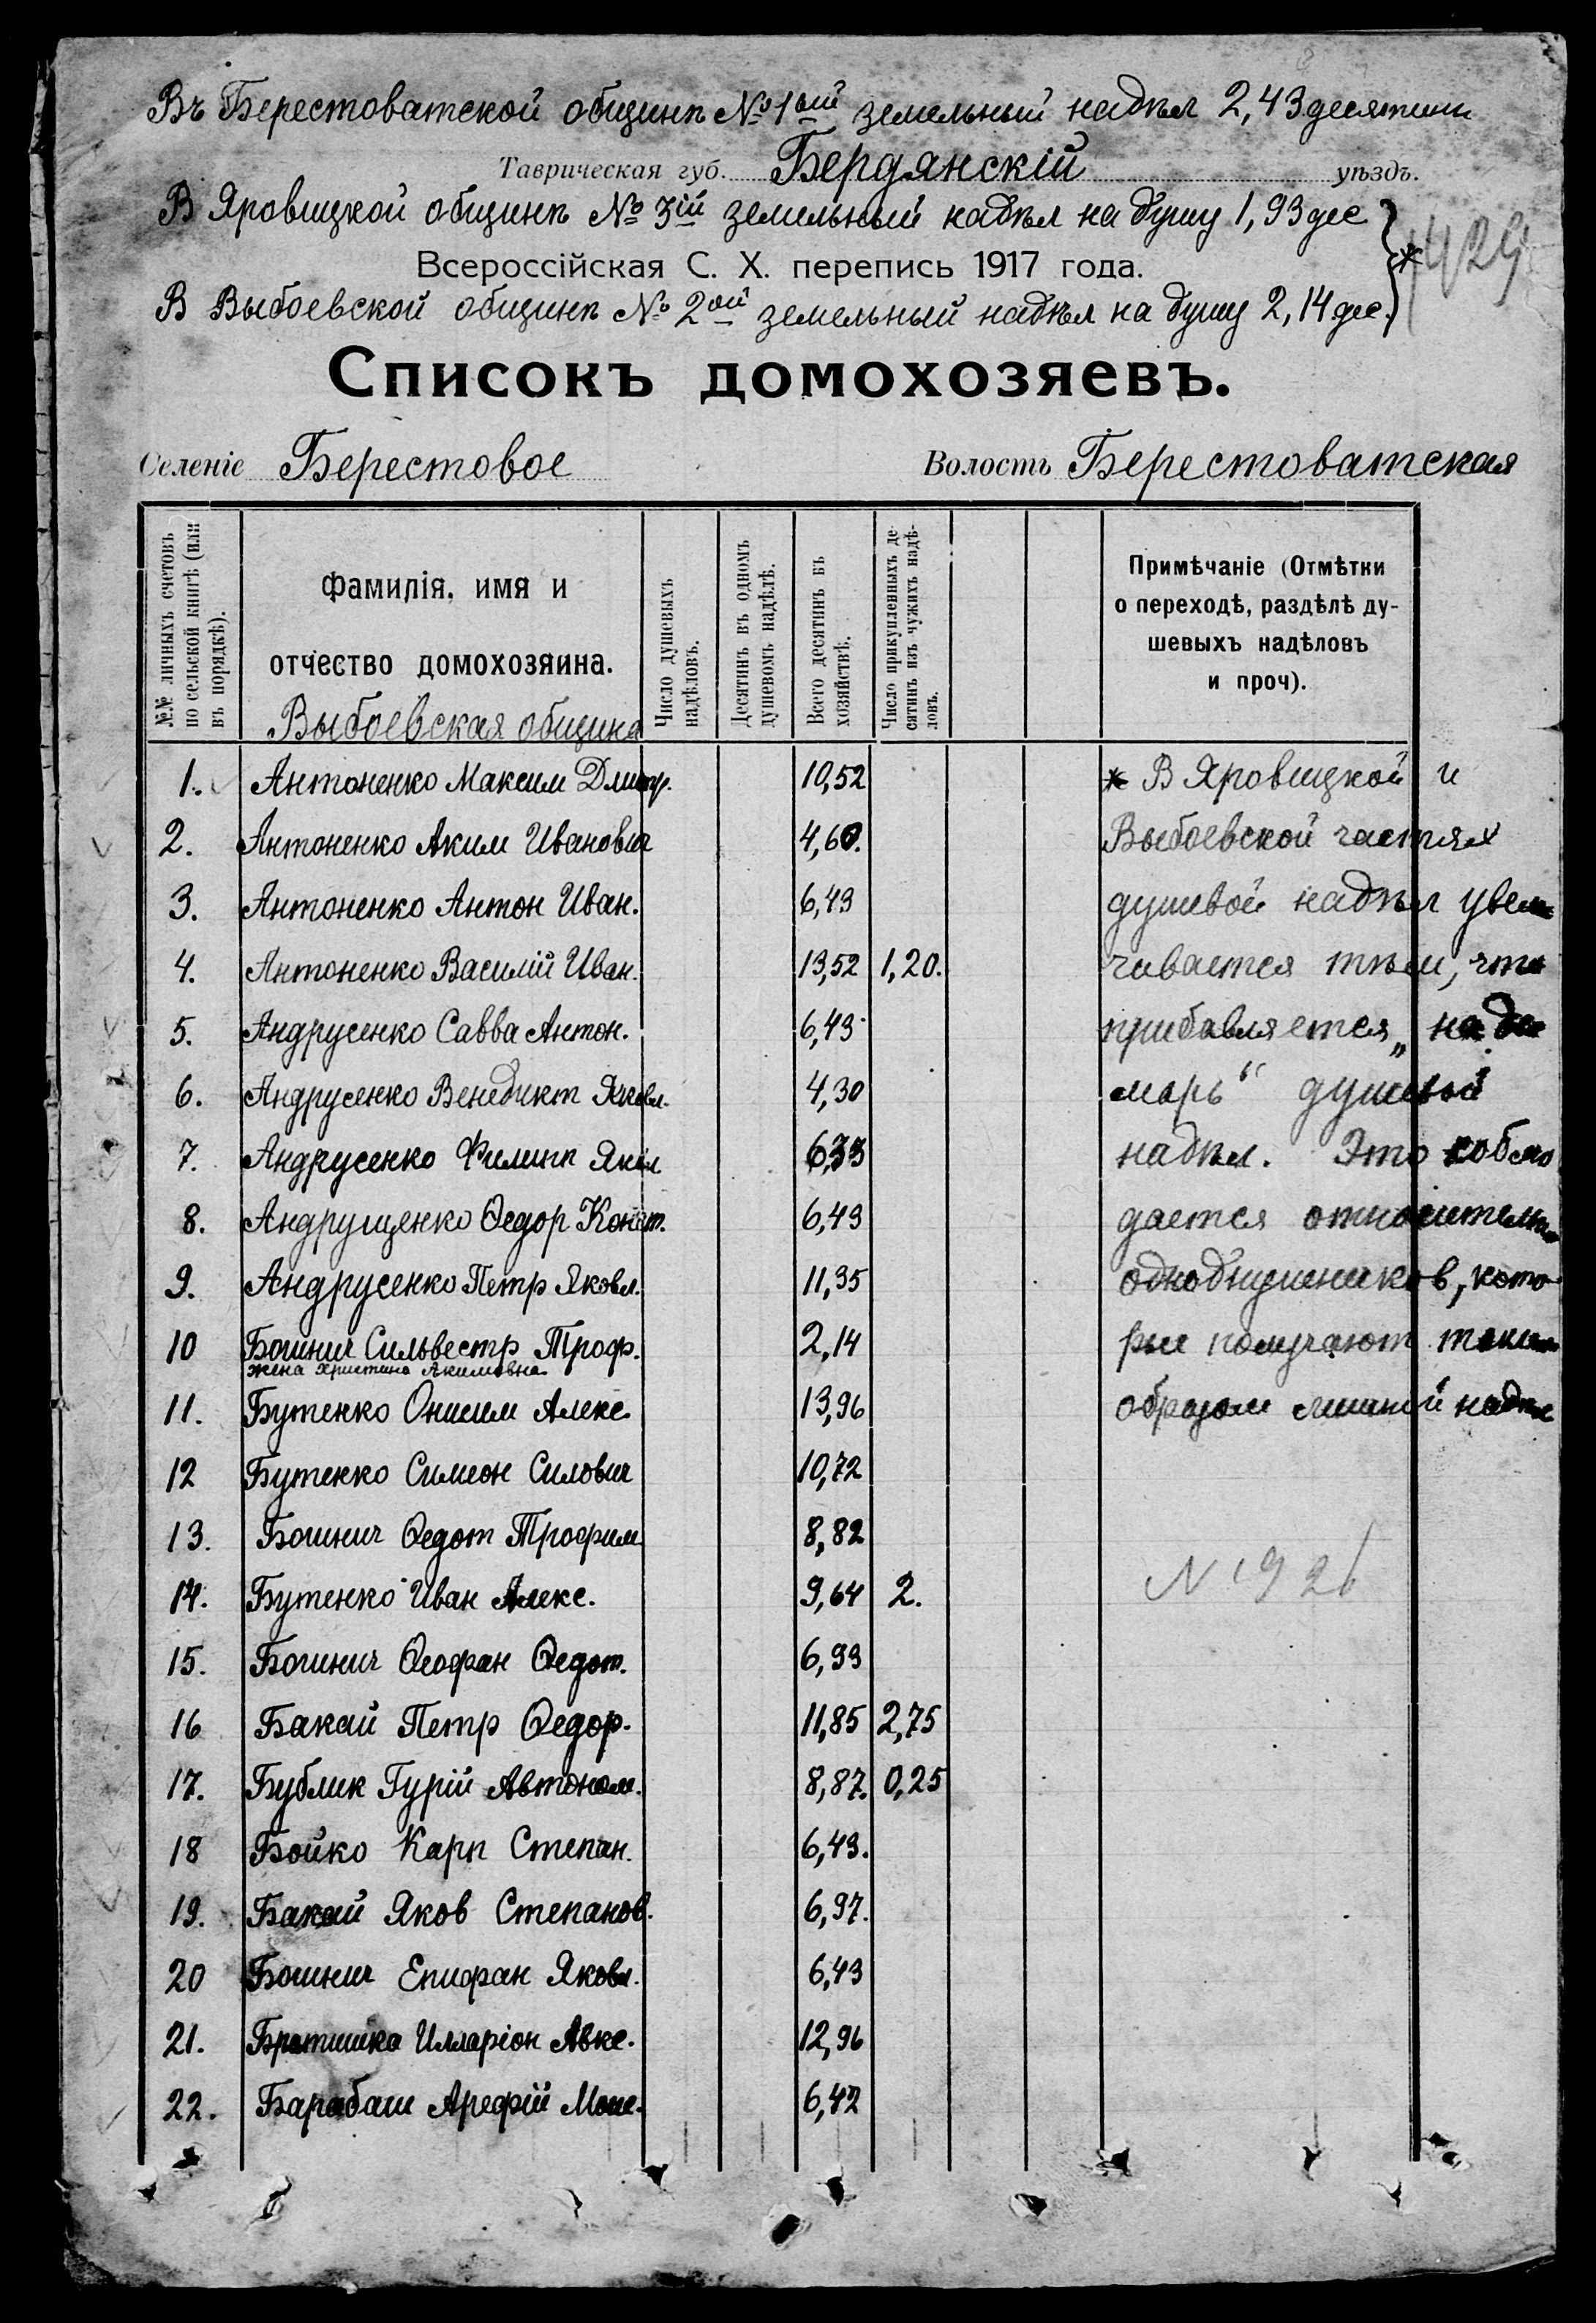 Въ Берестоватской общинѣ № 1ой земельный надѣл 2,43 десятины
Таврическая губ. Бердянскій уѣздъ.
В Яровицкой общинѣ № 3ій земельный надѣл на душу 1,93 дес
Всероссійская С. Х. перепись 1917 года.
В Выбоевской общинѣ № 2ой земельный надѣл на душу 2,14 дес. } *
Списокъ домохозяевъ.
Селеніе Берестовое Волость Берестоватская
№№ личныхъ счетовъ по сельской книгѣ (или въ порядкѣ).
Фамилія, имя и
отчество домохозяина.
Выбоевская община
Число душевыхъ надѣловъ.
Десятинъ въ одномъ душевомъ надѣлѣ.
Всего десятинъ въ хозяйствѣ.
Число прикупленныхъ десятинъ изъ чужихъ надѣловъ.
Примѣчаніе (Отмѣтки
о переходѣ, раздѣлѣ ду-
шевыхъ надѣловъ
и проч).
1. Антоненко Максим Дмитр. 10,52 * В Яровицкой и
2. Антоненко Аким Иванович 4,60. Выбоевской частях
3. Антоненко Антон Иван. 6,43 душевой надѣл увели
4. Антоненко Василій Иван. 13,52 1,20. чивается тѣм, что
5. Андрусенко Савва Антон. 6,43 прибавляется „на
6. Андрусенко Венедикт Яковл. 4,30 марь“ душевой
7. Андрусенко Филипп Якол 6,33 надѣл. Это соблю
8. Андрущенко Ѳедор Конст. 6,43 дается относительно
9. Андрусенко Петр Яковл. 11,35 однодушников, кото
10 Бошнич Сильвестр Троф. 2,14 рые получают таким
жена Христина Якимовна
11. Бутенко Онисим Алекс. 13,96 образом лишній надѣл
12 Бутенко Симеон Силович 10,72
13. Бошнич Ѳедот Трофим. 8,82
N 1926
14. Бутенко Иван Алекс. 9,64 2.
15. Бошнич Ѳеофан Ѳедот. 6,93
16 Бакай Петр Ѳедор. 11,85 2,75
17. Бублик Гурій Автоном. 8,87. 0,25
18 Бойко Карп Степан. 6,43.
19. Бакай Яков Степанов. 6,97.
20 Бошнич Епифан Яковл. 6,43
21. Братишка Илларіон Авкс. 12,96
22. Барабаш Арефій Моис. 6,42